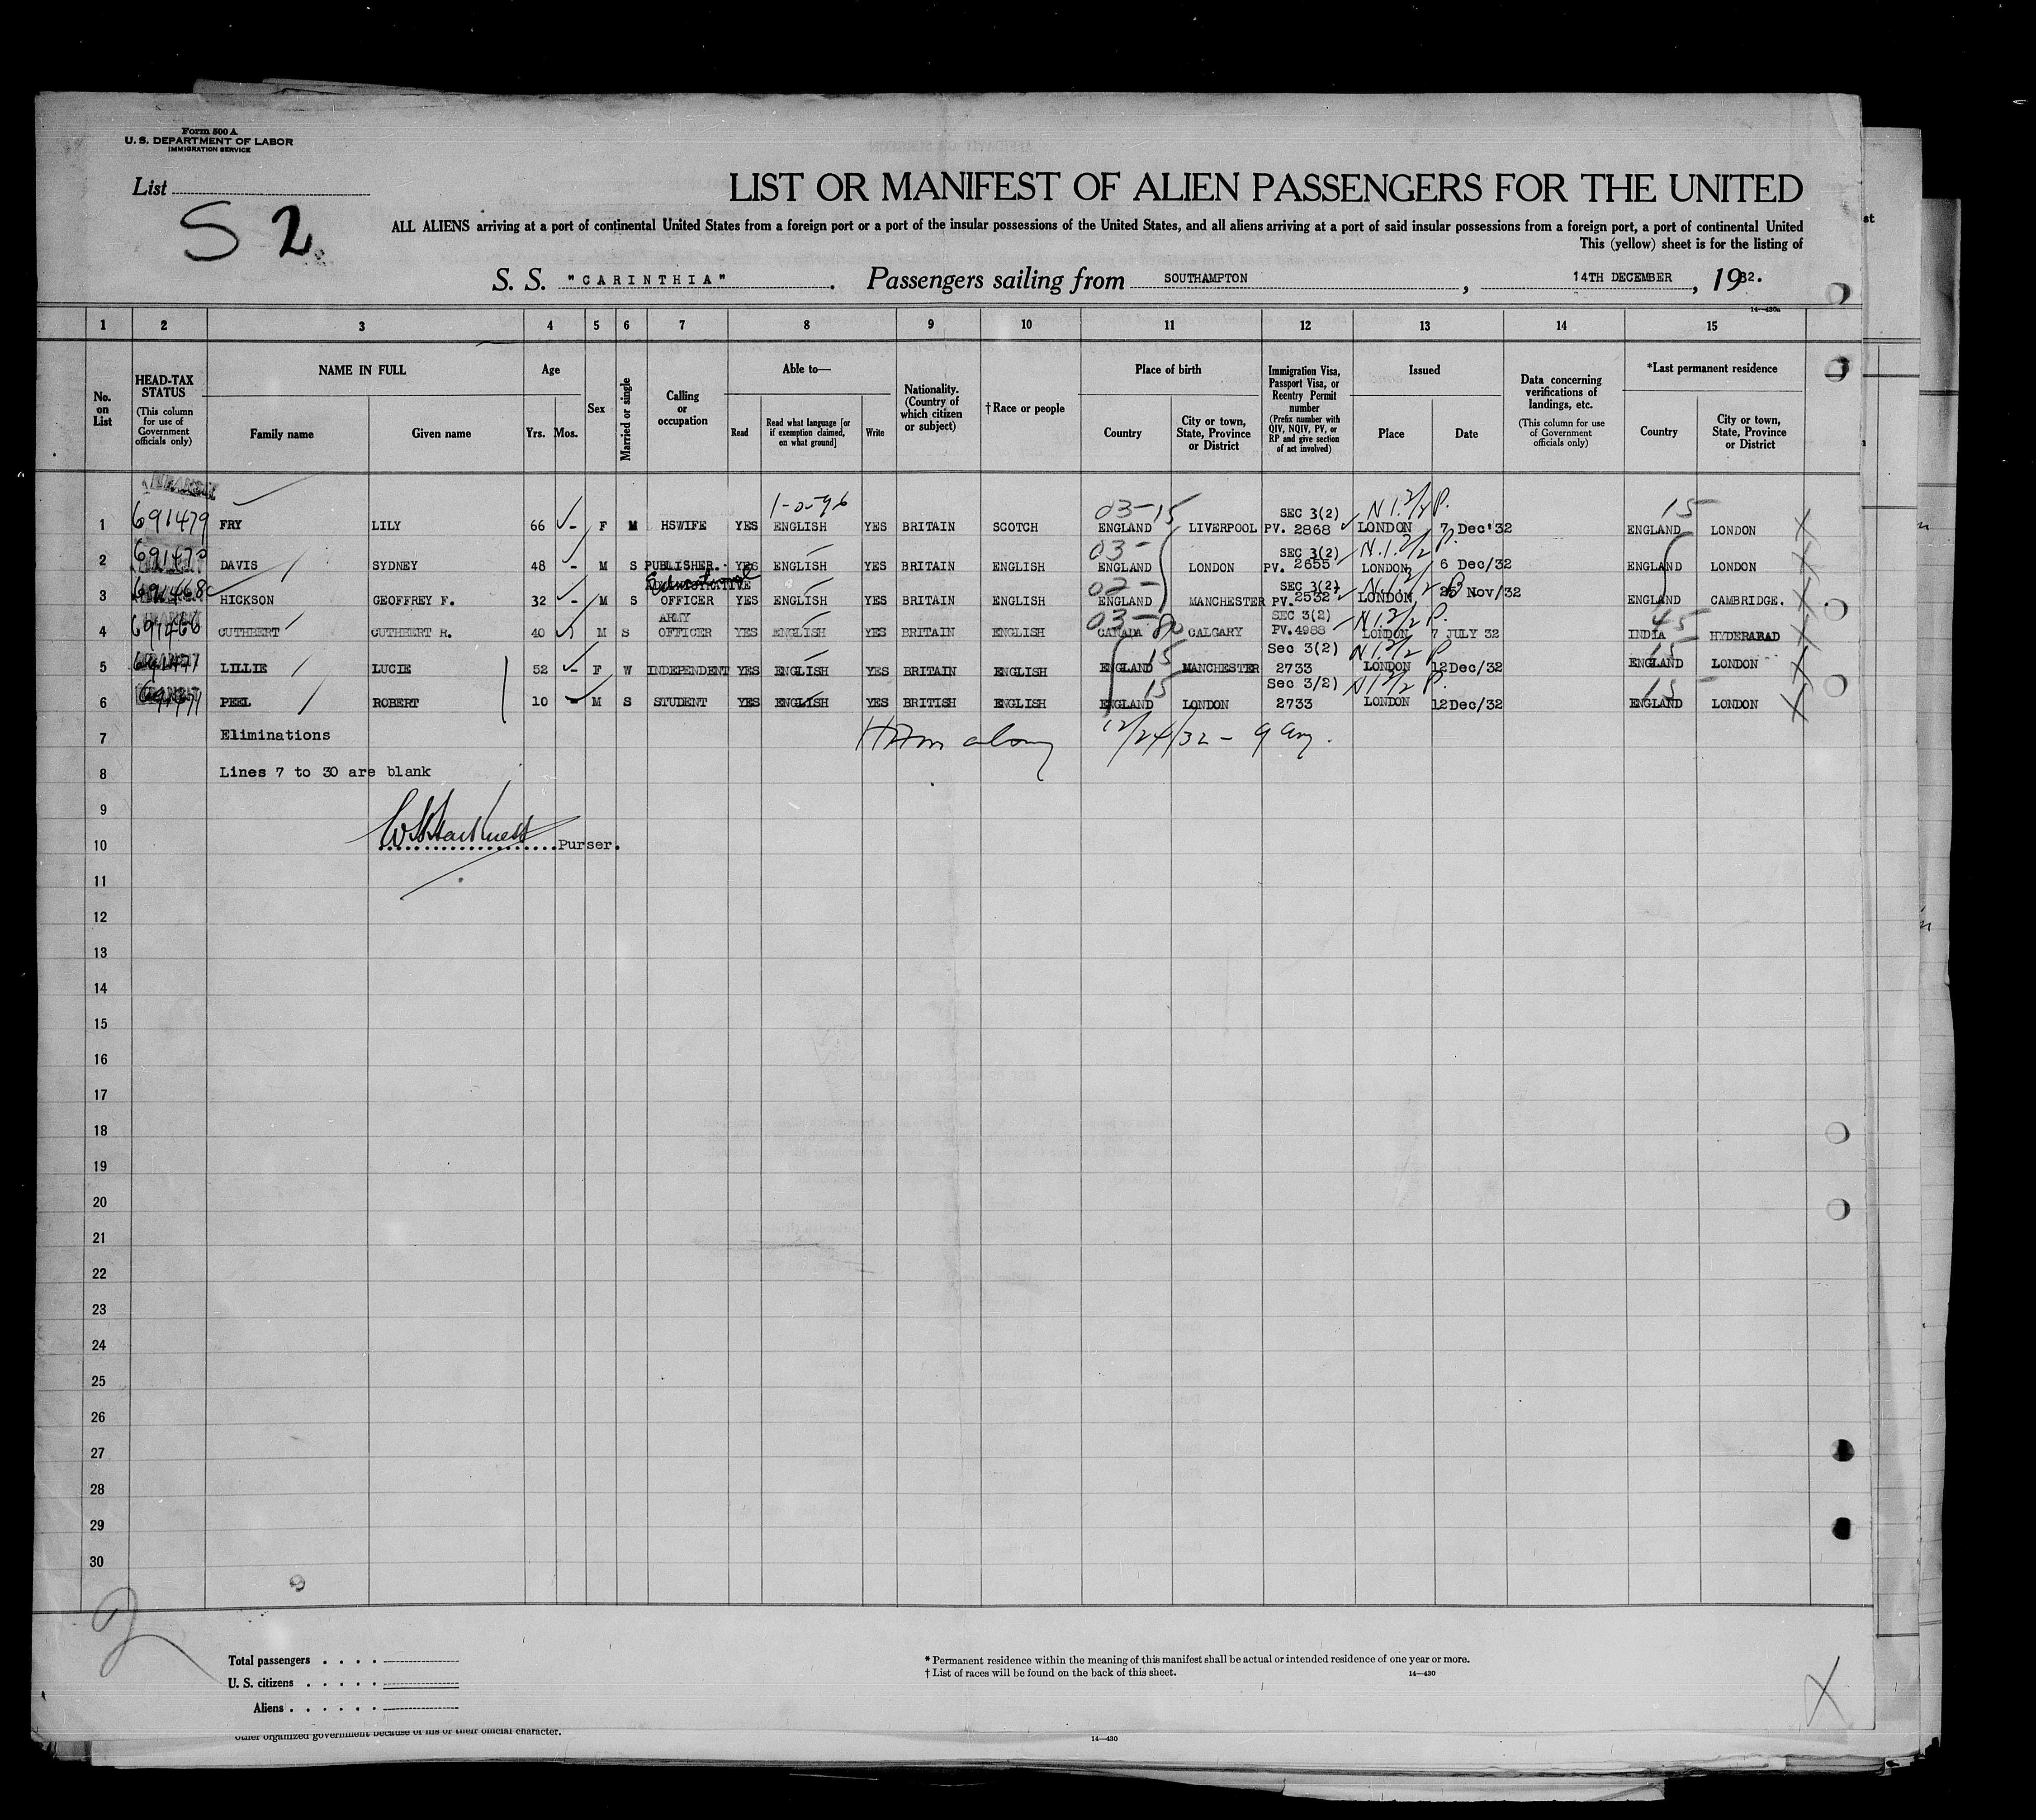 Form 500 A
U. S. DEPARTMENT OF LABOR
IMMIGRATION SERVICE
List
S 2.
LIST OR MANIFEST OF ALIEN PASSENGERS FOR THE UNITED
ALL ALIENS arriving at a port of continental United States from a foreign port or a port of the insular possessions of the United States, and all aliens arriving at a port of said insular possessions from a foreign port, a port of continental United
This (yellow) sheet is for the listing of
S. S. "CARINTHIA". Passengers sailing from SOUTHAMPTON, 14TH DECEMBER, 1932.
14—430a
1 2 3 4 5 6 7 8 9 10 11 12 13 14 15
No. on List
HEAD-TAX STATUS (This column for use of Government officials only)
NAME IN FULL Family name Given name
Age Yrs. Mos.
Sex
Married or single
Calling or occupation
Able to— Read Read what language [or if exemption claimed, on what ground] Write
Nationality. (Country of which citizen or subject)
†Race or people
Place of birth Country City or town, State, Province or District
Immigration Visa, Passport Visa, or Reentry Permit number (Prefix number with QIV, NQIV, PV, or RP and give section of act involved)
Issued Place Date
Data concerning verifications of landings, etc. (This column for use of Government officials only)
*Last permanent residence Country City or town, State, Province or District
TRANSIT 03-15 SEC 3(2) 15
1 691479 FRY LILY 66 - F M HSWIFE YES ENGLISH YES BRITAIN SCOTCH ENGLAND LIVERPOOL PV. 2868 LONDON 7 Dec'32 ENGLAND LONDON X
03- SEC 3(2)
2 DAVIS SYDNEY 48 - M S PUBLISHER. YES ENGLISH YES BRITAIN ENGLISH ENGLAND LONDON PV. 2655 LONDON 6 Dec/32 ENGLAND LONDON X
Educational 02- SEC 3(2)
3 HICKSON GEOFFREY F. 32 - M S OFFICER YES ENGLISH YES BRITAIN ENGLISH ENGLAND MANCHESTER PV. 2532 LONDON Nov/32 ENGLAND CAMBRIDGE. X
ARMY 03- SEC 3(2) 45
4 CUTHBERT CUTHBERT R. 40 M S OFFICER YES ENGLISH YES BRITAIN ENGLISH CANADA CALGARY PV.4988 LONDON 7 JULY 32 INDIA HYDERABAD X
15 Sec 3(2) 15
5 LILLIE LUCIE 52 - F W INDEPENDENT YES ENGLISH YES BRITAIN ENGLISH ENGLAND MANCHESTER 2733 LONDON 12Dec/32 ENGLAND LONDON X
15 Sec 3/2) 15
6 PEEL ROBERT 10 - M S STUDENT YES ENGLISH YES BRITISH ENGLISH ENGLAND LONDON 2733 LONDON 12Dec/32 ENGLAND LONDON X
7 Eliminations 12/24/32 - 9
8 Lines 7 to 30 are blank
9
10 Purser.
11
12
13
14
15
16
17
18
19
20
21
22
23
24
25
26
27
28
29
30
2
Total passengers
U. S. citizens
Aliens
* Permanent residence within the meaning of this manifest shall be actual or intended residence of one year or more.
† List of races will be found on the back of this sheet. 14—430
X
other organized government because of his or their official character.
14—430